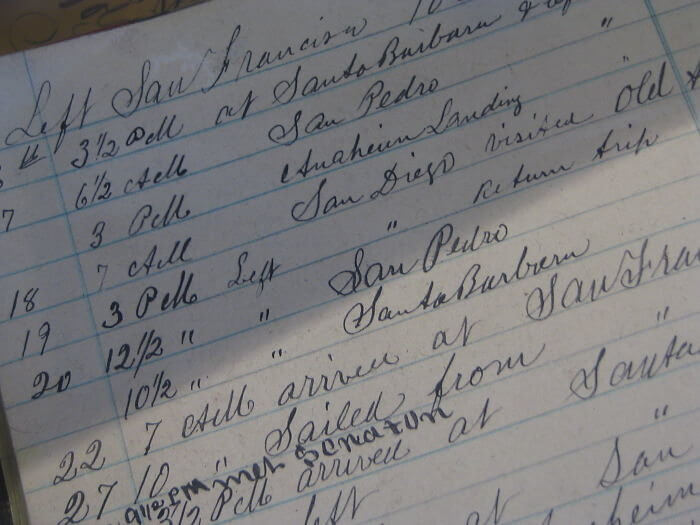 Left San Francisco 10
th 3½ PM at Santa Barbara &
6½ AM San Pedro "
7 3 PM Anaheim Landing "
7 AM San Diego visited Old
18 3 PM Left " Return trip
19 12½ " " San Pedro
20 10½ " " Santa Barbara
22 7 AM arrived at San Fran
27 10 " Sailed from "
9½ PM met Senator
3½ PM arrived at Santa
left "
at San